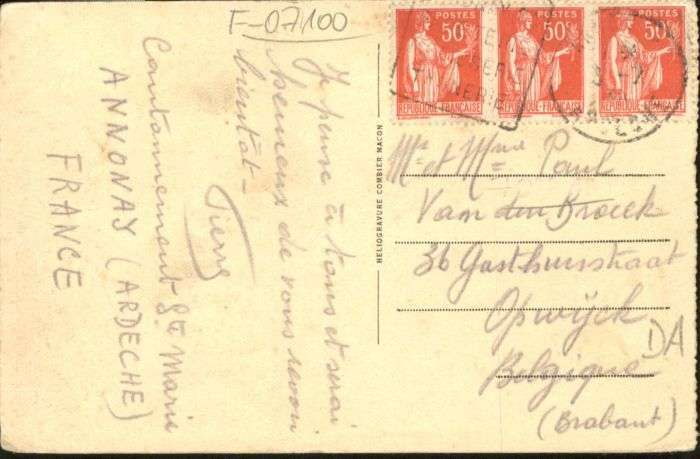 F-07100
Je pense à tous et serai
heureux de vous revoir
bientôt -
Pierre
Cantonnement Ste Marie
ANNONAY (ARDECHE)
FRANCE
HELIOGRAVURE COMBIER MACON
POSTES POSTES POSTES
50c 50c 50c
REPUBLIQUE FRANÇAISE REPUBLIQUE FRANÇAISE REPUBLIQUE FRANÇAISE
Mr et Mme Paul
Van den Broeck
36 Gasthuisstraat
Opwijck
Belgique
(Brabant)
DA